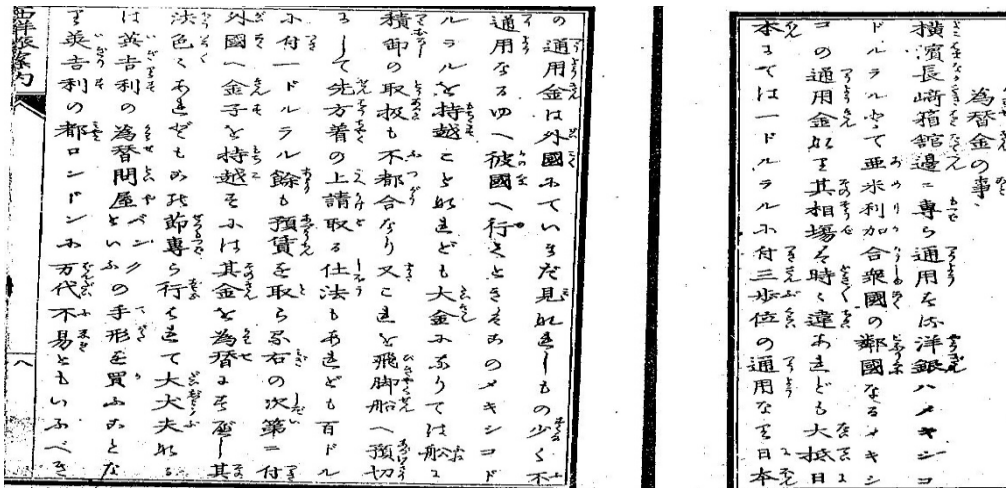 為替金の事
横濱長崎箱舘邊ニ専ら通用する洋銀ハメキシコ
ドルラルにて亜米利加合衆國の鄰國なるメキシ
コの通用金なり其相場は時々違あれども大抵日
本にては一ドルラルに付三歩位の通用なり日本
の通用金は外國にていまだ見なれしもの少く不
通用なるゆへ彼國へ行くときはかのメキシコド
ルラルを持越ことなれども大金になりては船に
積卸の取扱も不都合なり又これを飛脚船へ預切
にして先方着の上請取る仕法もあれども百ドル
に付一ドルラル餘も預賃を取らる右の次第ニ付
外國へ金子を持越すには其金を為替にすべし其
法色々あれども當節専ら行はれて大丈夫なる
は英吉利の為替問屋バンクといふの手形を買ふことな
り英吉利の都ロンドンに万代不易ともいふべき
西洋旅案内
八